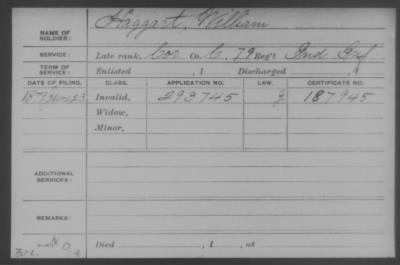 NAME OF SOLDIER: Haggart, William
SERVICE: Late rank, Cor Co. C, 79 Reg't Ind Inf
TERM OF SERVICE: Enlisted , 1 Discharged , 1
DATE OF FILING. CLASS. APPLICATION NO. LAW. CERTIFICATE NO.
1879 June 23 Invalid, 293745 187945
Widow,
Minor,
ADDITIONAL SERVICES:
REMARKS:
Died , 1 , at